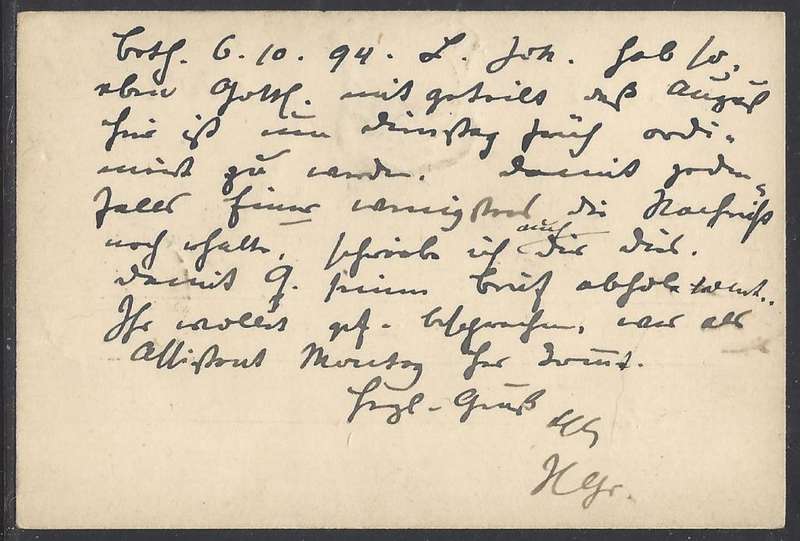 Beth. 6.10.94. L. Joh. Hab so,
eben Gottl. mitgeteilt daß August
hier ist um Dienstag früh ordi=
niert zu werden. Damit jeden=
falls Einer wenigstens die Nachricht
noch erhalte, schreibe ich auch Dir dies.
damit G. seinen Brief abhole
Ihr wollet gef. besprechen, wer als
Assistent Montag her kommt.
Herzl. Gruß
HGr.